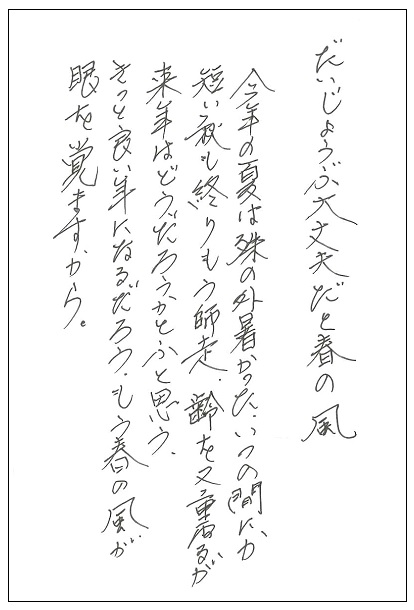 だいじょうぶ大丈夫だと春の風
今年の夏は殊の外暑かった。いつの間にか
短い秋も終りもう師走、齢を又重ねるが
来年はどうだろうかとふと思う、
きっと良い年になるだろう。もう春の風が
眼を覚ますから。